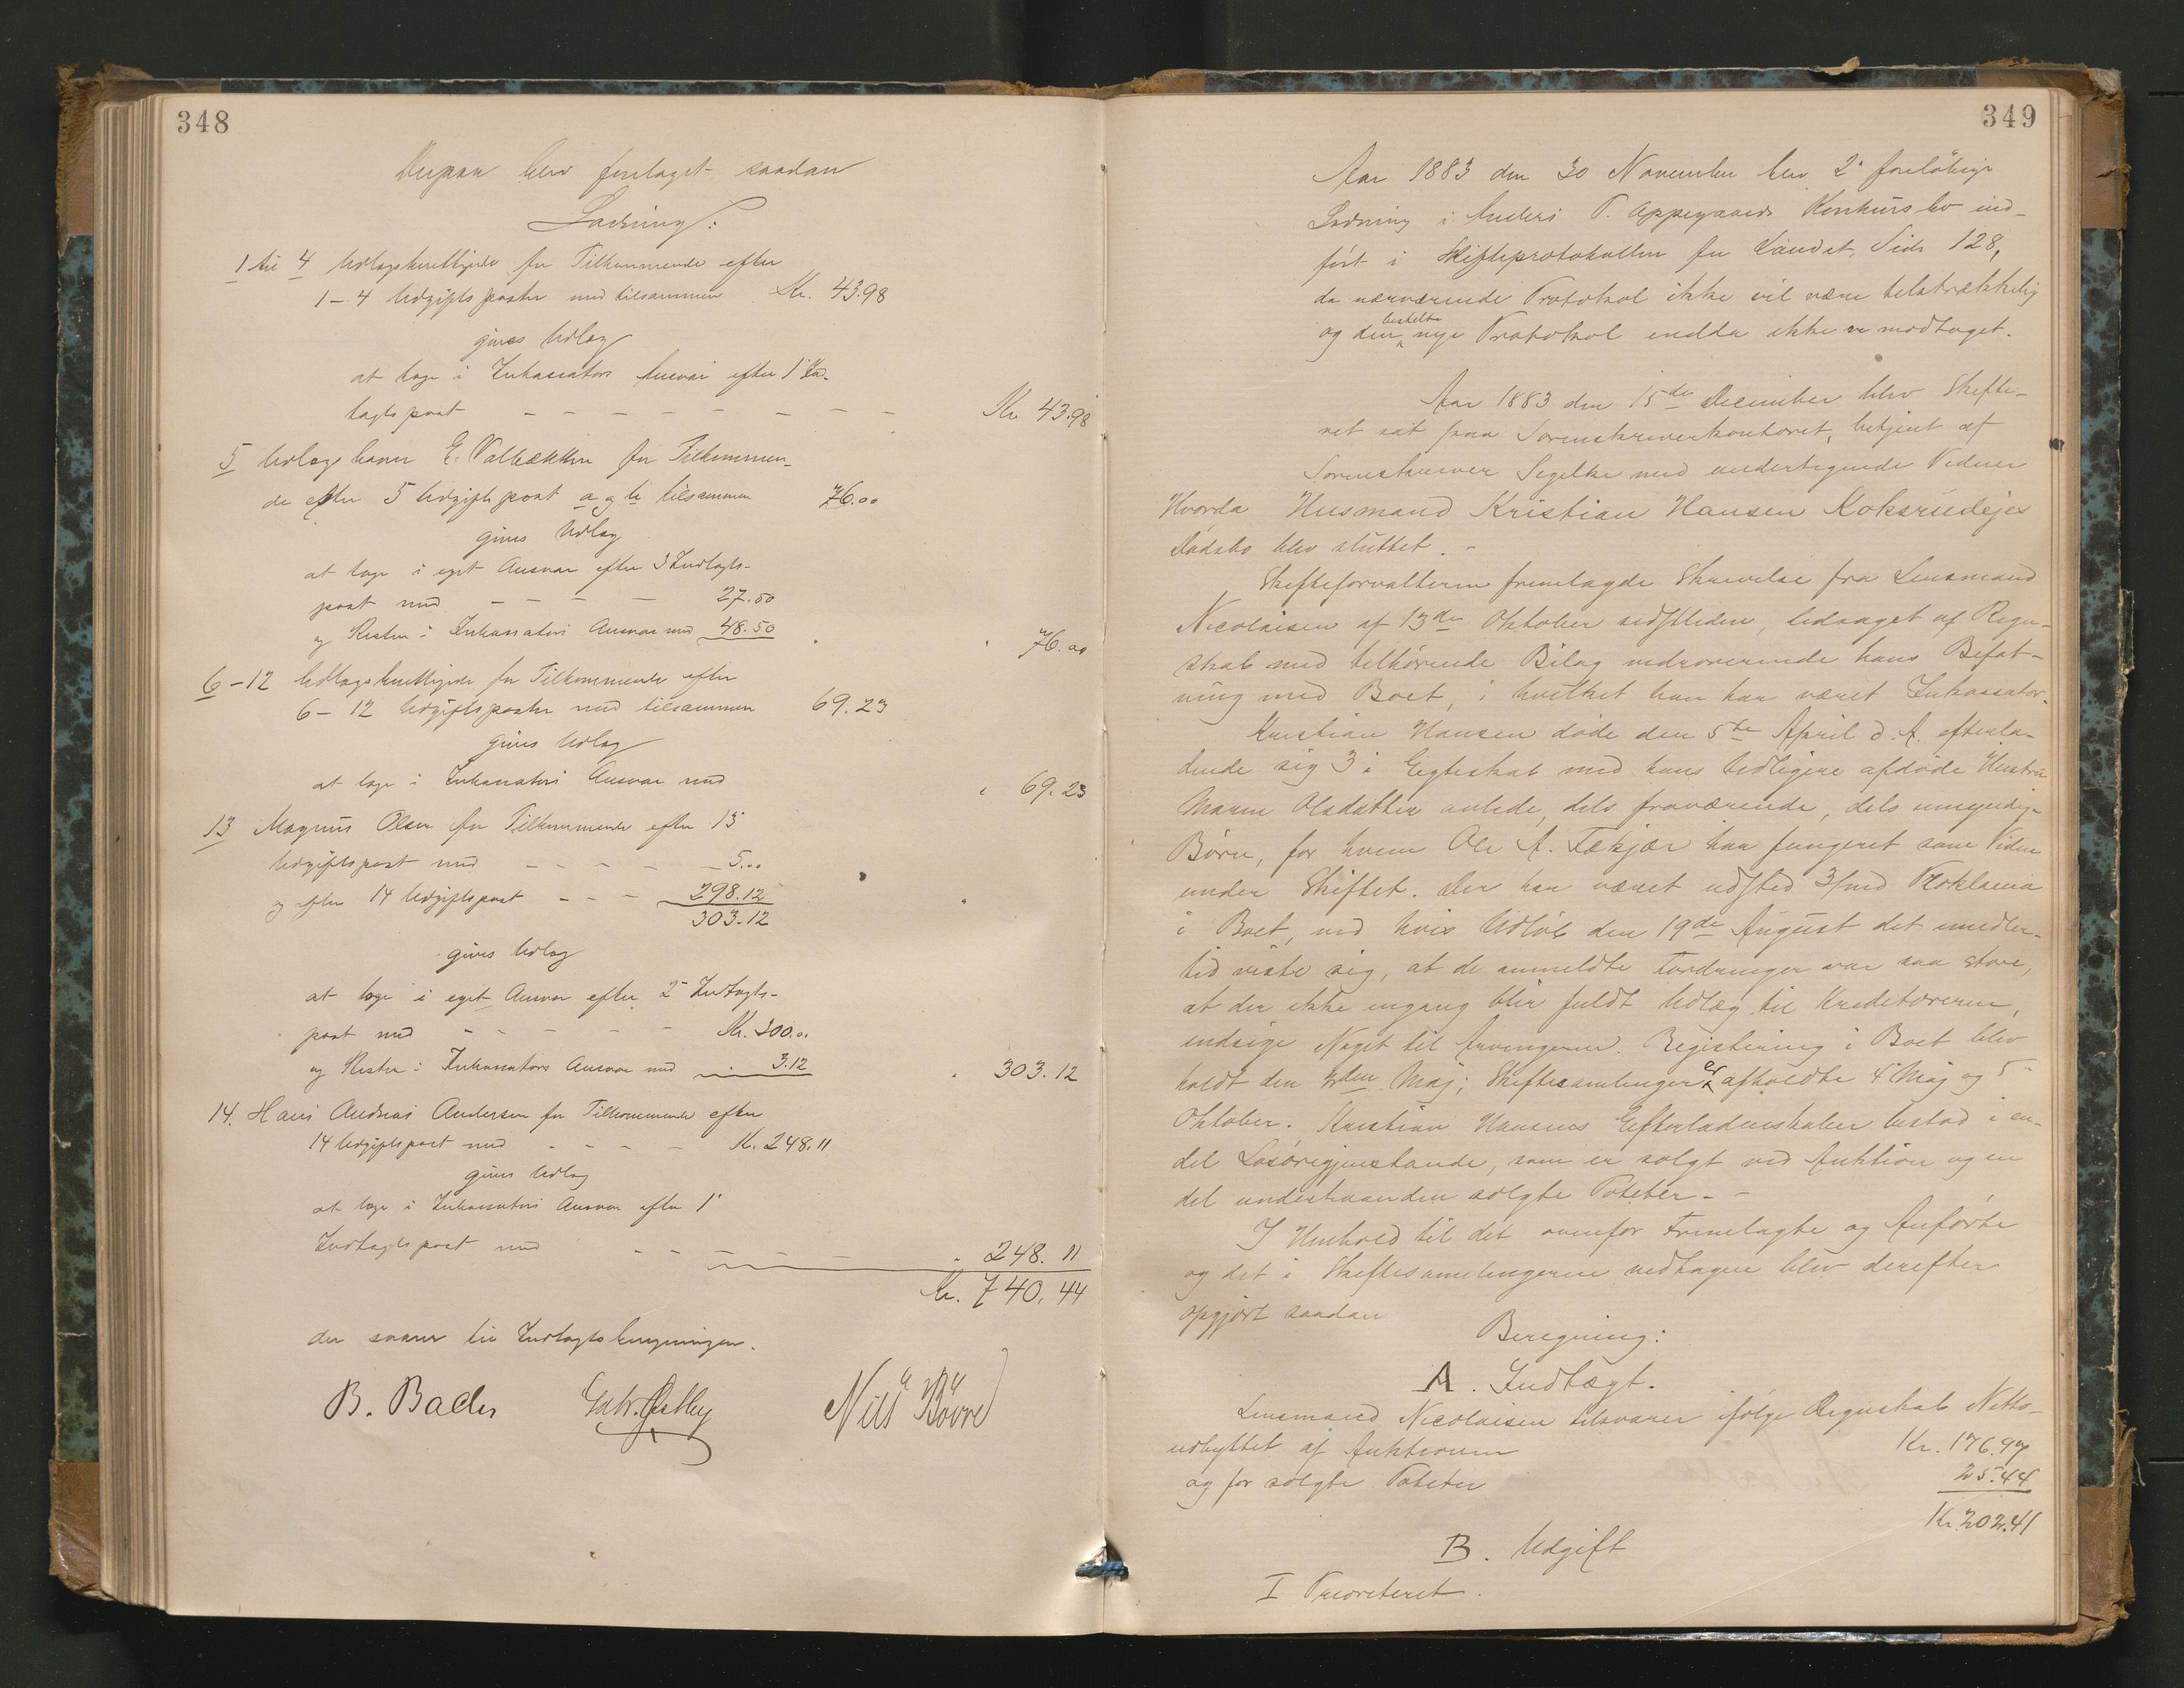 348
Derpaa blev foretaget saadan
Lodning:
1 til 4 Udlagsberettigede for Tilkommende efter
1-4 Udgiftsposter med tilsammen Kr. 43.98
gives Udlag
at tage i Inkassators Ansvar efter 1' Ind-
tagtspost - - - - - - - - Kr. 43.98
5 Udlaghaver E. Valbækken for Tilkommen-
de efter 5 Udgiftspost a og b tilsammen 76.00
gives Udlag
at tage i eget Ansvar efter 3 Indtagts-
post med - - - - 27.50
og Resten i Inkassators Ansvar med 48.50 " 76.00
6-12 Udlagsberettigede for Tilkommende efter
6-12 Udgiftsposter med tilsammen 69.23
gives Udlag
at tage i Inkassators Ansvar med " 69.23
13 Magnus Olsen for Tilkommende efter 13'
Udgiftspost med - - - - - 5.00
og efter 14 Udgiftspost - - - 298.12
303.12
gives Udlag
at tage i eget Ansvar efter 2' Indtagts-
post med - - - - - Kr. 300.00
og Resten i Inkassators Ansvar med 3.12 " 303.12
14. Hans Andreas Andersen for Tilkommende efter
14 Udgiftspost med - - - - Kr. 248.11
gives Udlag
at tage i Inkassators Ansvar efter 1'
Indtagtspost med - - - - - " 248.11
Kr. 740.44
der svarer til Indtagtsberegningen.
B. Bader Østby Nils Bøvre
349
Aar 1883 den 30 November blev 2' foreløbige
Lodning i Anders P. Oppegaards Konkursbo ind-
ført i Skifteprotokollen for Landet, Side 128,
da nærværende Protokol ikke vil være tilstrækkelig
og den bestelte nye Protokol endda ikke er modtaget.
Aar 1883 den 15de December blev Skifte-
ret sat paa Sorenskriverkontoret, betjent af
Sorenskriver Segelke med undertegnede Vidner
Hvorda Husmand Kristian Hansen Koksrudejes
Dødsbo blev sluttet. -
Skifteforvalteren fremlagde Skrivelse fra Lensmand
Nicolaisen af 13de Oktober sidstleden, ledsaget af Regn-
skab med tilhørende Bilag vedrørende hans Befat-
ning med Boet, i hvilket han har været Inkassator.
Kristian Hansen døde den 5te April d. A. efterla-
dende sig 3 i Egteskab med hans tidligere afdøde Hustru
Maren Olsdatter avlede, dels fraværende, dels umyndige
Børn, for hvem Ole A. Fækjær har fungeret som Viden
under Skiftet. Der har været udsted 3/md Proklama
i Boet, ved hvis Udløb den 19de August det imidler-
tid viste sig, at de anmeldte Fordringer var saa store,
at der ikke engang blir fuldt Udlæg til Kreditorerne,
endsige Noget til Arvingerne. Registrering i Boet blev
holdt den 3den Maj; Skiftesamlinger er afholdte 4' Maj og 5'
Oktober. Kristian Hansens Efterladenskaber bestod i en-
del Løsøregjenstande, som er solgt ved Auktion og en
del underhaanden solgte Poteter. -
I Henhold til det ovenfor Fremlagte og Anførte
og det i Skiftesamlingerne vedtagne blev derefter
opgjort saadan
Beregning:
A. Indtægt.
Lensmand Nicolaisen tilsvarer ifølge Regnskab Netto-
udbyttet af Auktionen Kr. 176.97
og for solgte Poteter 25.44
Kr. 202.41
B. Udgift
I Prioriteret.